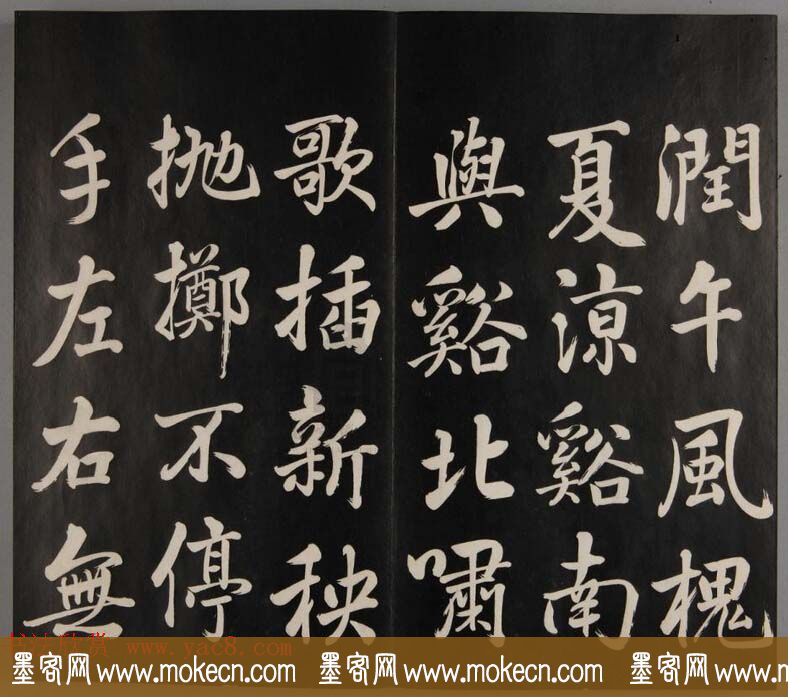 潤午風槐
夏涼谿南
與谿北嘯
歌插新秧
抛擲不停
手左右無
书法欣赏 www.yac8.com
墨客网 www.mokecn.com 墨客网 www.mokecn.com 墨客网 www.mokecn.com